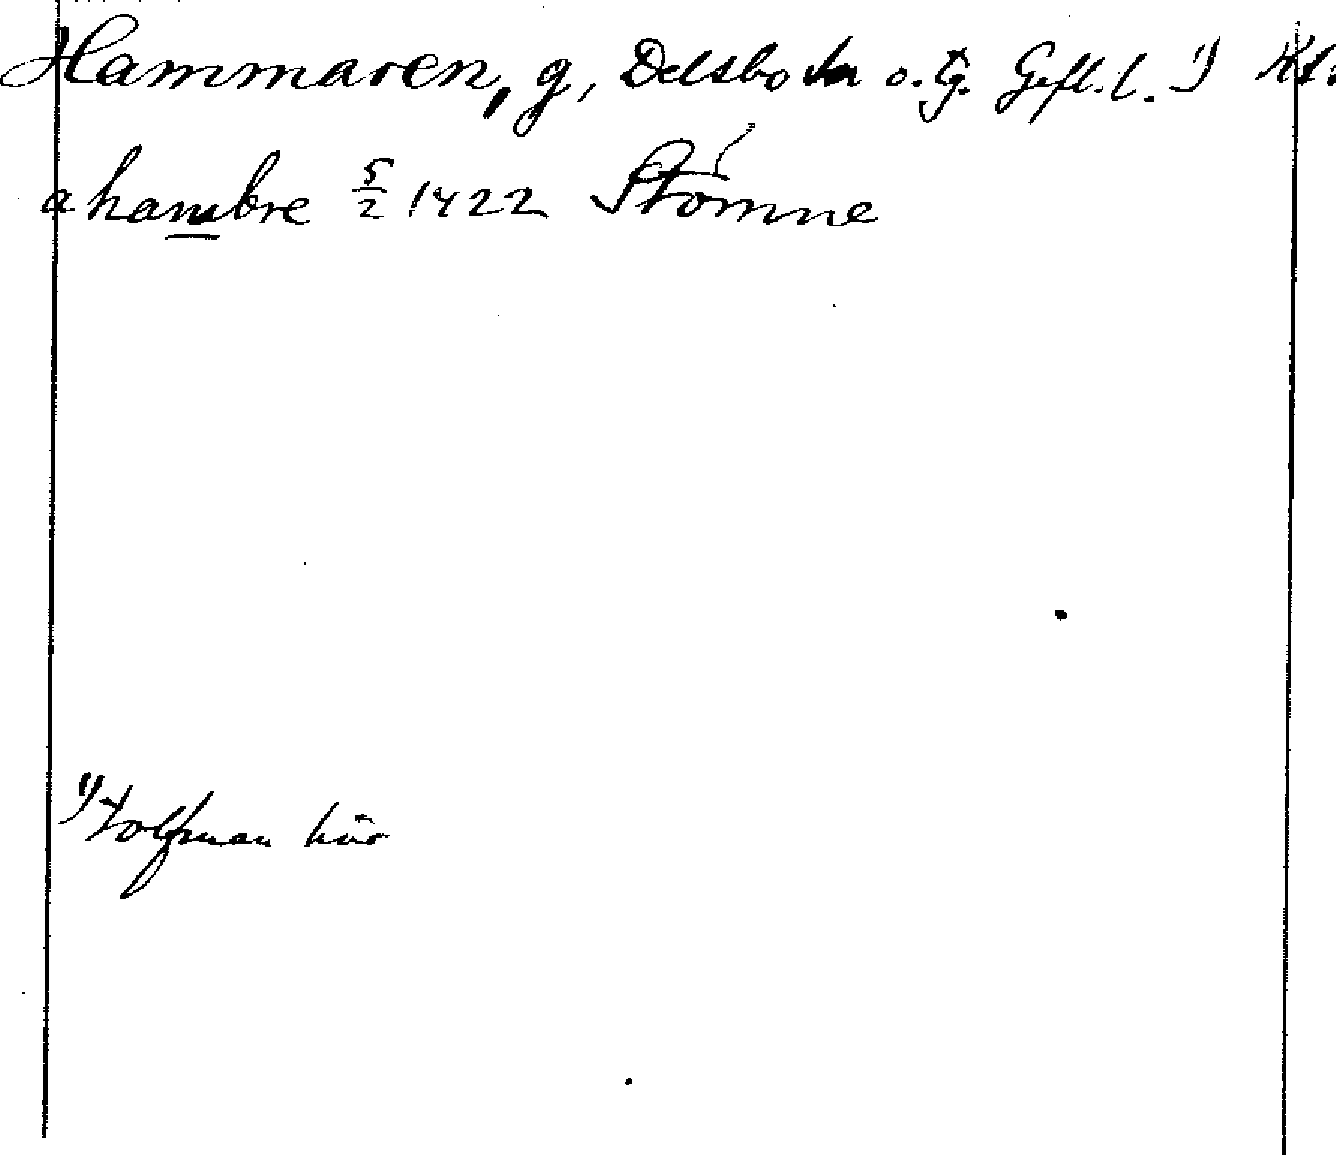 Hammaren, g, Delsbo sn o. tg. Gefl. l. 1) Kt.
a hambre 5/2 1422 Stömne
1) tolfman här